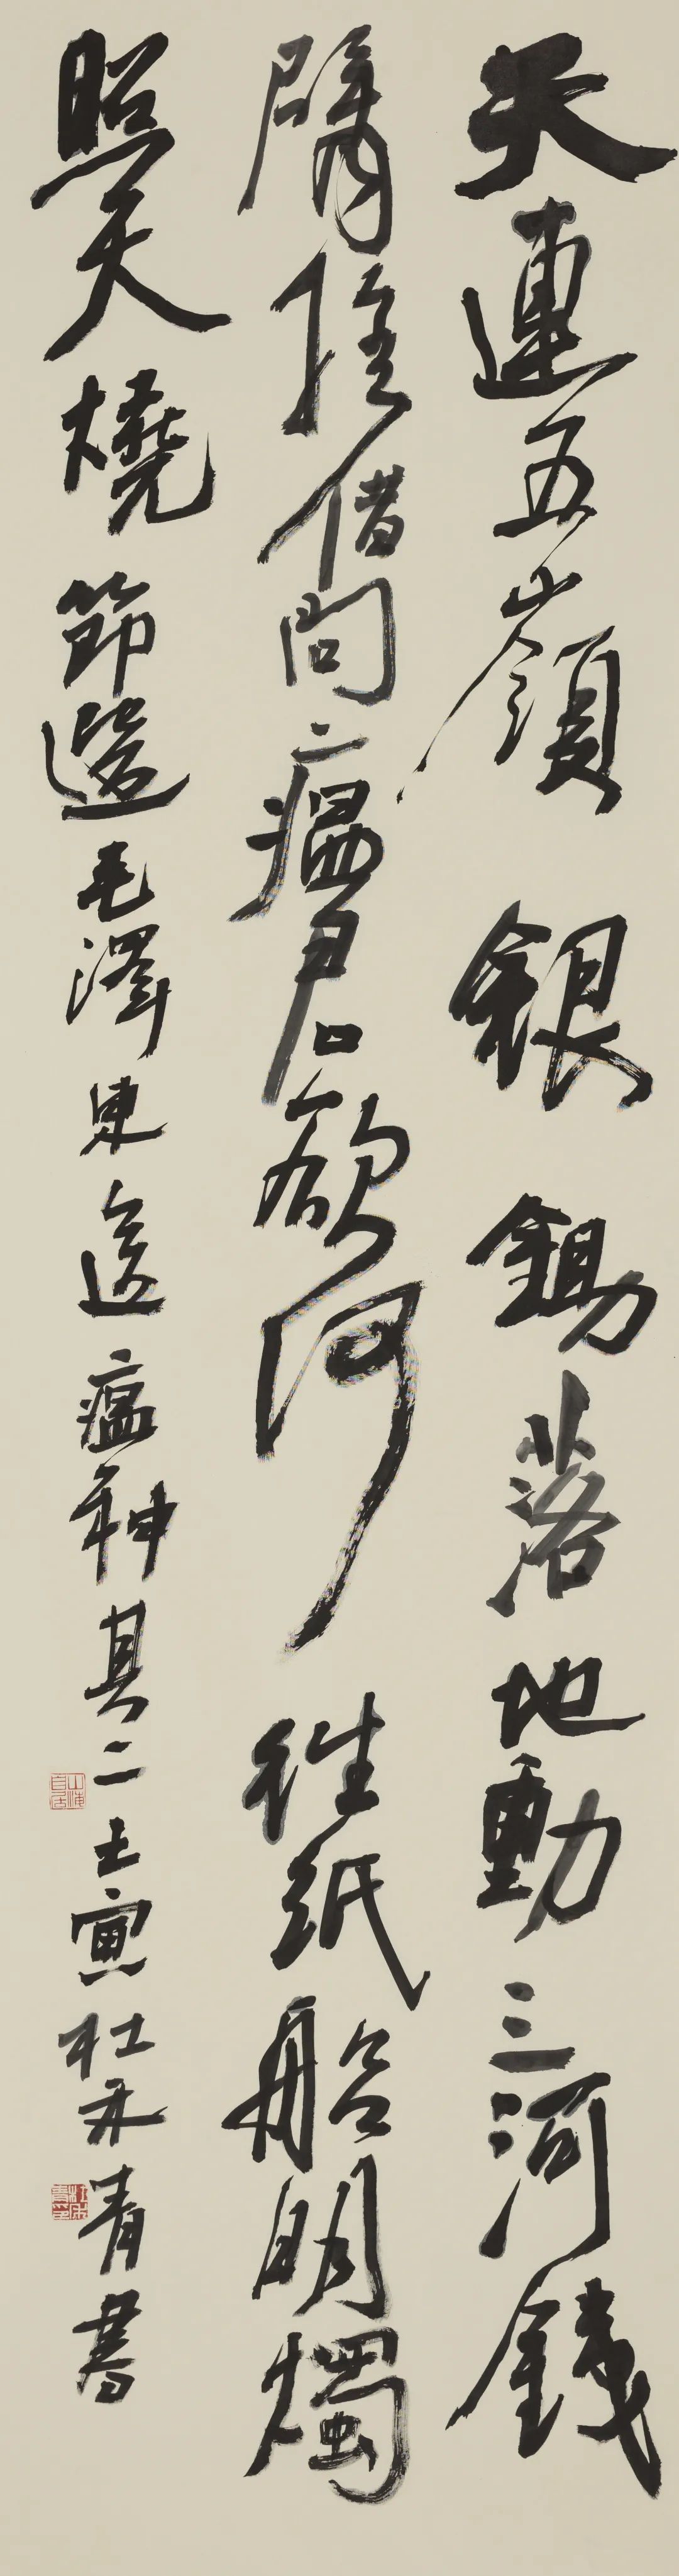 天連五嶺銀鋤落地動三河鐵
臂摇借問瘟君欲何往紙船明燭
照天燒節選毛澤東送瘟神其二壬寅杜青書